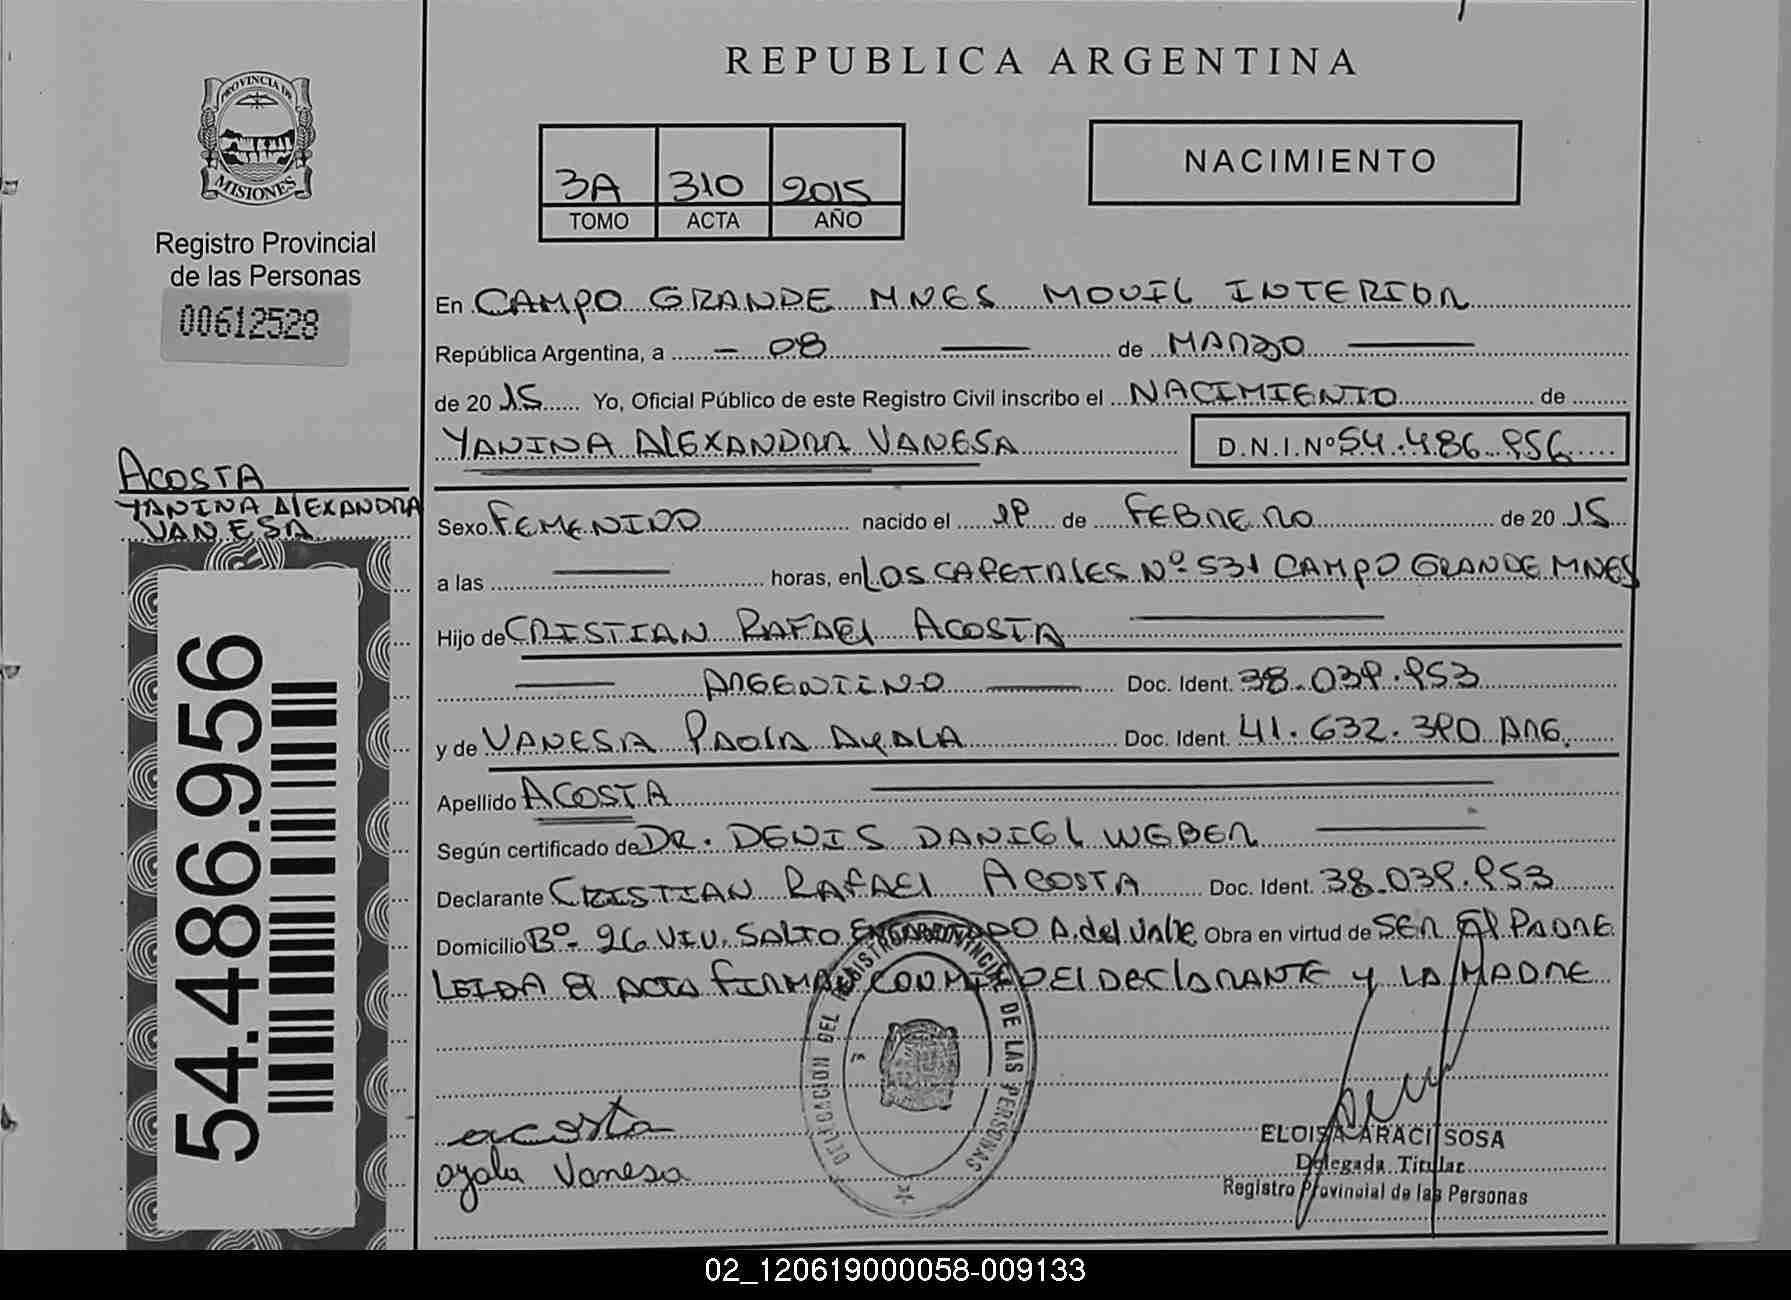 REPUBLICA ARGENTINA
PROVINCIA DE
MISIONES
Registro Provincial
de las Personas
00612528
3A 310 2015
TOMO ACTA AÑO
NACIMIENTO
En CAMPO GRANDE MNES MOVIL INTERIOR
República Argentina, a - 08 — de MARZO —
de 20 15 Yo, Oficial Público de este Registro Civil inscribo el NACIMIENTO de
YANINA ALEXANDRA VANESA D.N.I.Nº 54.486.956
ACOSTA
YANINA ALEXANDRA
VANESA
54.486.956
Sexo FEMENINO nacido el 19 de FEBRERO de 20 15
a las — horas, en LOS CAPETALES Nº 531 CAMPO GRANDE MNES
Hijo de CRISTIAN RAFAEL ACOSTA —
— ARGENTINO — Doc. Ident. 38.039.953
y de VANESA PAOLA AYALA Doc. Ident. 41.632.390 ARG.
Apellido ACOSTA —
Según certificado de DR. DENIS DANIEL WEBER —
Declarante CRISTIAN RAFAEL ACOSTA Doc. Ident. 38.039.953
Domicilio Bº 26 VIV. SALTO ENCANTADO A. del Valle Obra en virtud de SER El PADRE
LEIDA El ACTA FIRMAN CON MI DEl DEClARANTE y LA MADRE
DELEGACION DEL REGISTRO PROVINCIAL DE LAS PERSONAS
acosta
ayala Vanesa
ELOISA ARACI SOSA
Delegada Titular
Registro Provincial de las Personas
02_120619000058-009133